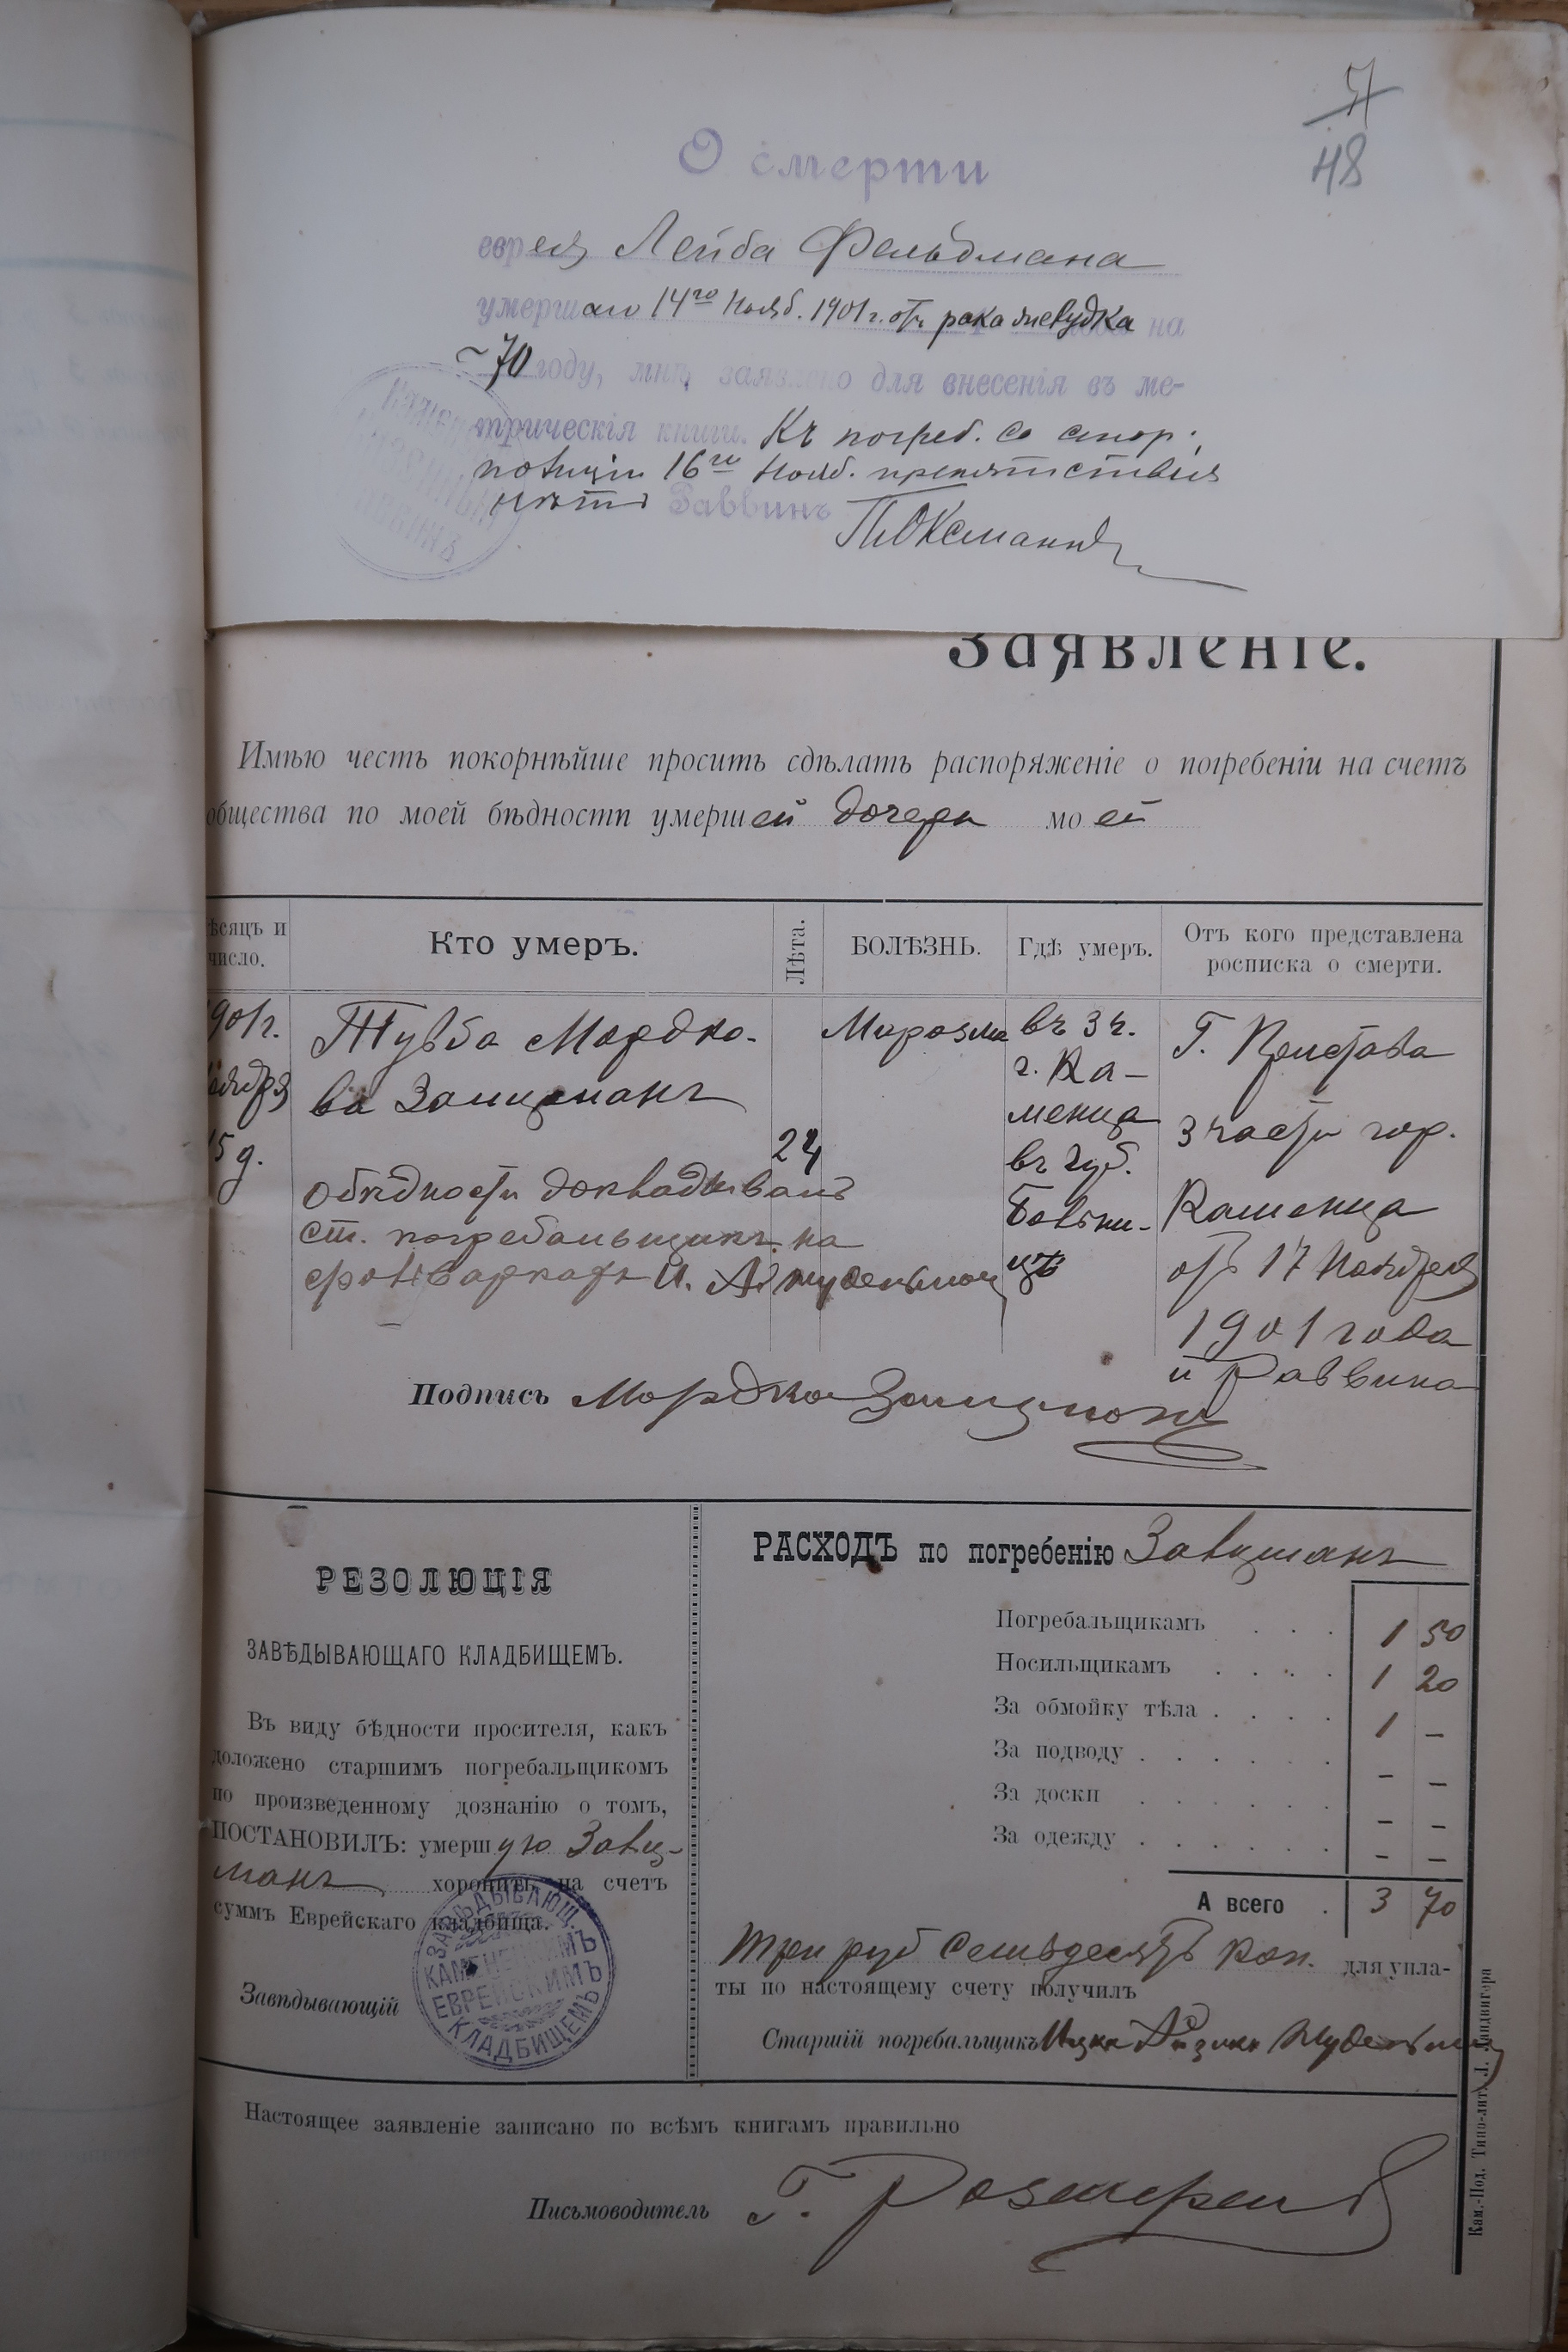 57
48
О смерти
еврея Лейба Фельдмана
умершаго 14го Нояб. 1901 г. отъ рака желудка на
70 году, мнѣ заявлено для внесенія въ ме-
трическія книги. Къ погреб. со стор.
полиціи 16го Нояб. препятствія
нѣтъ Раввинъ
Заявленіе.
Имѣю честь покорнѣйше просить сдѣлать распоряженіе о погребеніи на счетъ
общества по моей бѣдности умершей дочери моей
ѣсяцъ и число.
Кто умеръ.
Лѣта.
БОЛѢЗНЬ.
Гдѣ умеръ.
Отъ кого представлена росписка о смерти.
901 г.
оября
15 д.
Мордко-
ва Залцманъ
24
въ 3 ч.
г. Ка-
менца
въ губ.
больни-
цѣ
Г. Пристава
3 части гор.
Каменца
отъ 17 Ноября
1901 года
и Раввина
о бѣдности докладывалъ
ст. погребальщикъ на
Подпись Мордко Залцманъ
РЕЗОЛЮЦІЯ
ЗАВѢДЫВАЮЩАГО КЛАДБИЩЕМЪ.
Въ виду бѣдности просителя, какъ
доложено старшимъ погребальщикомъ
по произведенному дознанію о томъ,
ПОСТАНОВИЛЪ: умершую Залц-
манъ хоронить на счетъ
суммъ Еврейскаго кладбища.
Завѣдывающій
ЗАВѢДЫВАЮЩ. КАМЕНЕЦКИМЪ ЕВРЕЙСКИМЪ КЛАДБИЩЕМЪ
РАСХОДЪ по погребенію Залцманъ
Погребальщикамъ . . . 1 50
Носильщикамъ . . . . 1 20
За обмойку тѣла . . . . 1 –
За подводу . . . . . . – –
За доски . . . . . . – –
За одежду . . . . . . – –
А всего . 3 70
Три руб Семьдесятъ коп. для упла-
ты по настоящему счету получилъ
Старшій погребальщикъ Ицко
Настоящее заявленіе записано по всѣмъ книгамъ правильно
Письмоводитель Г.
Кам.-Под. Типо-лит. Л. Ландвигера